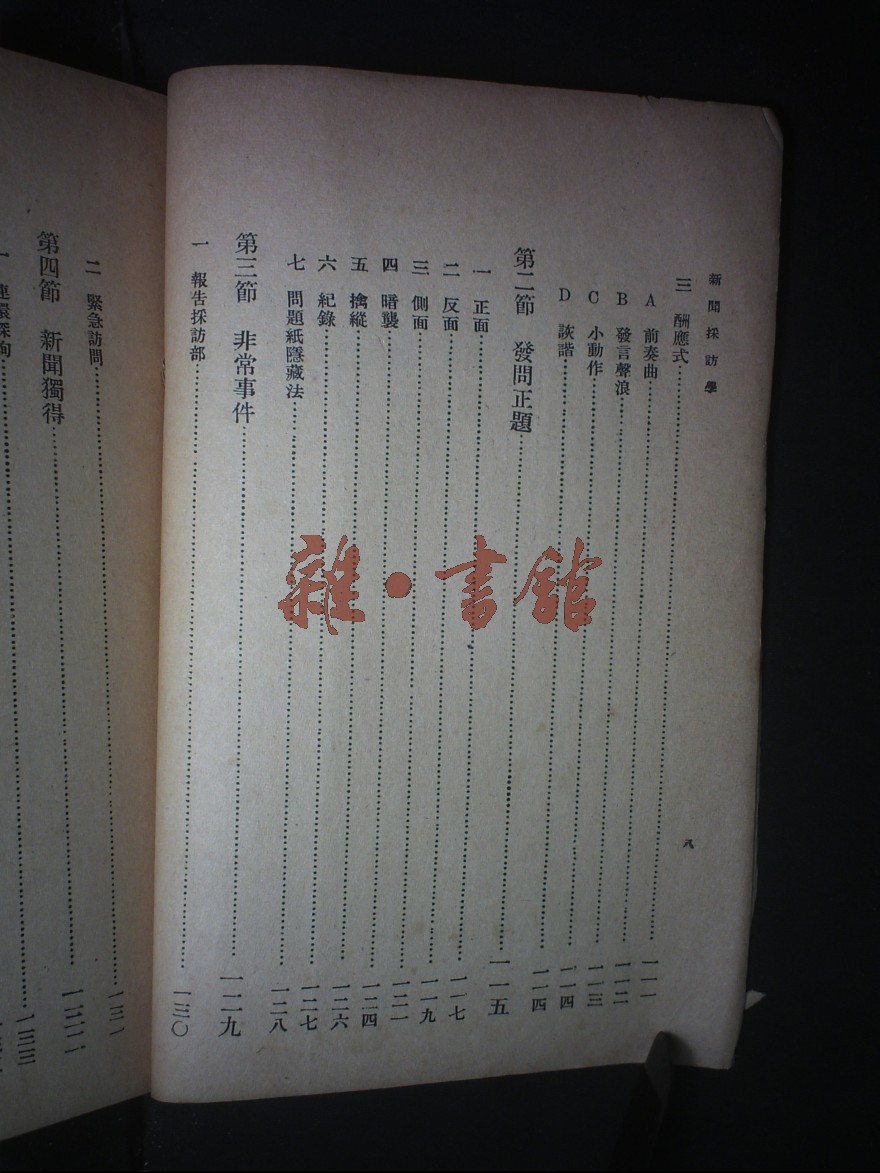 新聞採訪學
八
三 酬應式……一一一
A 前奏曲……一一二
B 發言聲浪……一一三
C 小動作……一一四
D 詼諧……一一四
第二節 發問正題……一一五
一 正面……一一七
二 反面……一一九
三 側面……一二一
四 暗襲……一二四
五 擒縱……一二六
六 紀錄……一二七
七 問題紙隱藏法……一二八
第三節 非常事件……一二九
一 報告採訪部……一三〇
二 緊急訪問……一三一
第四節 新聞獨得……一三二
雜·書館